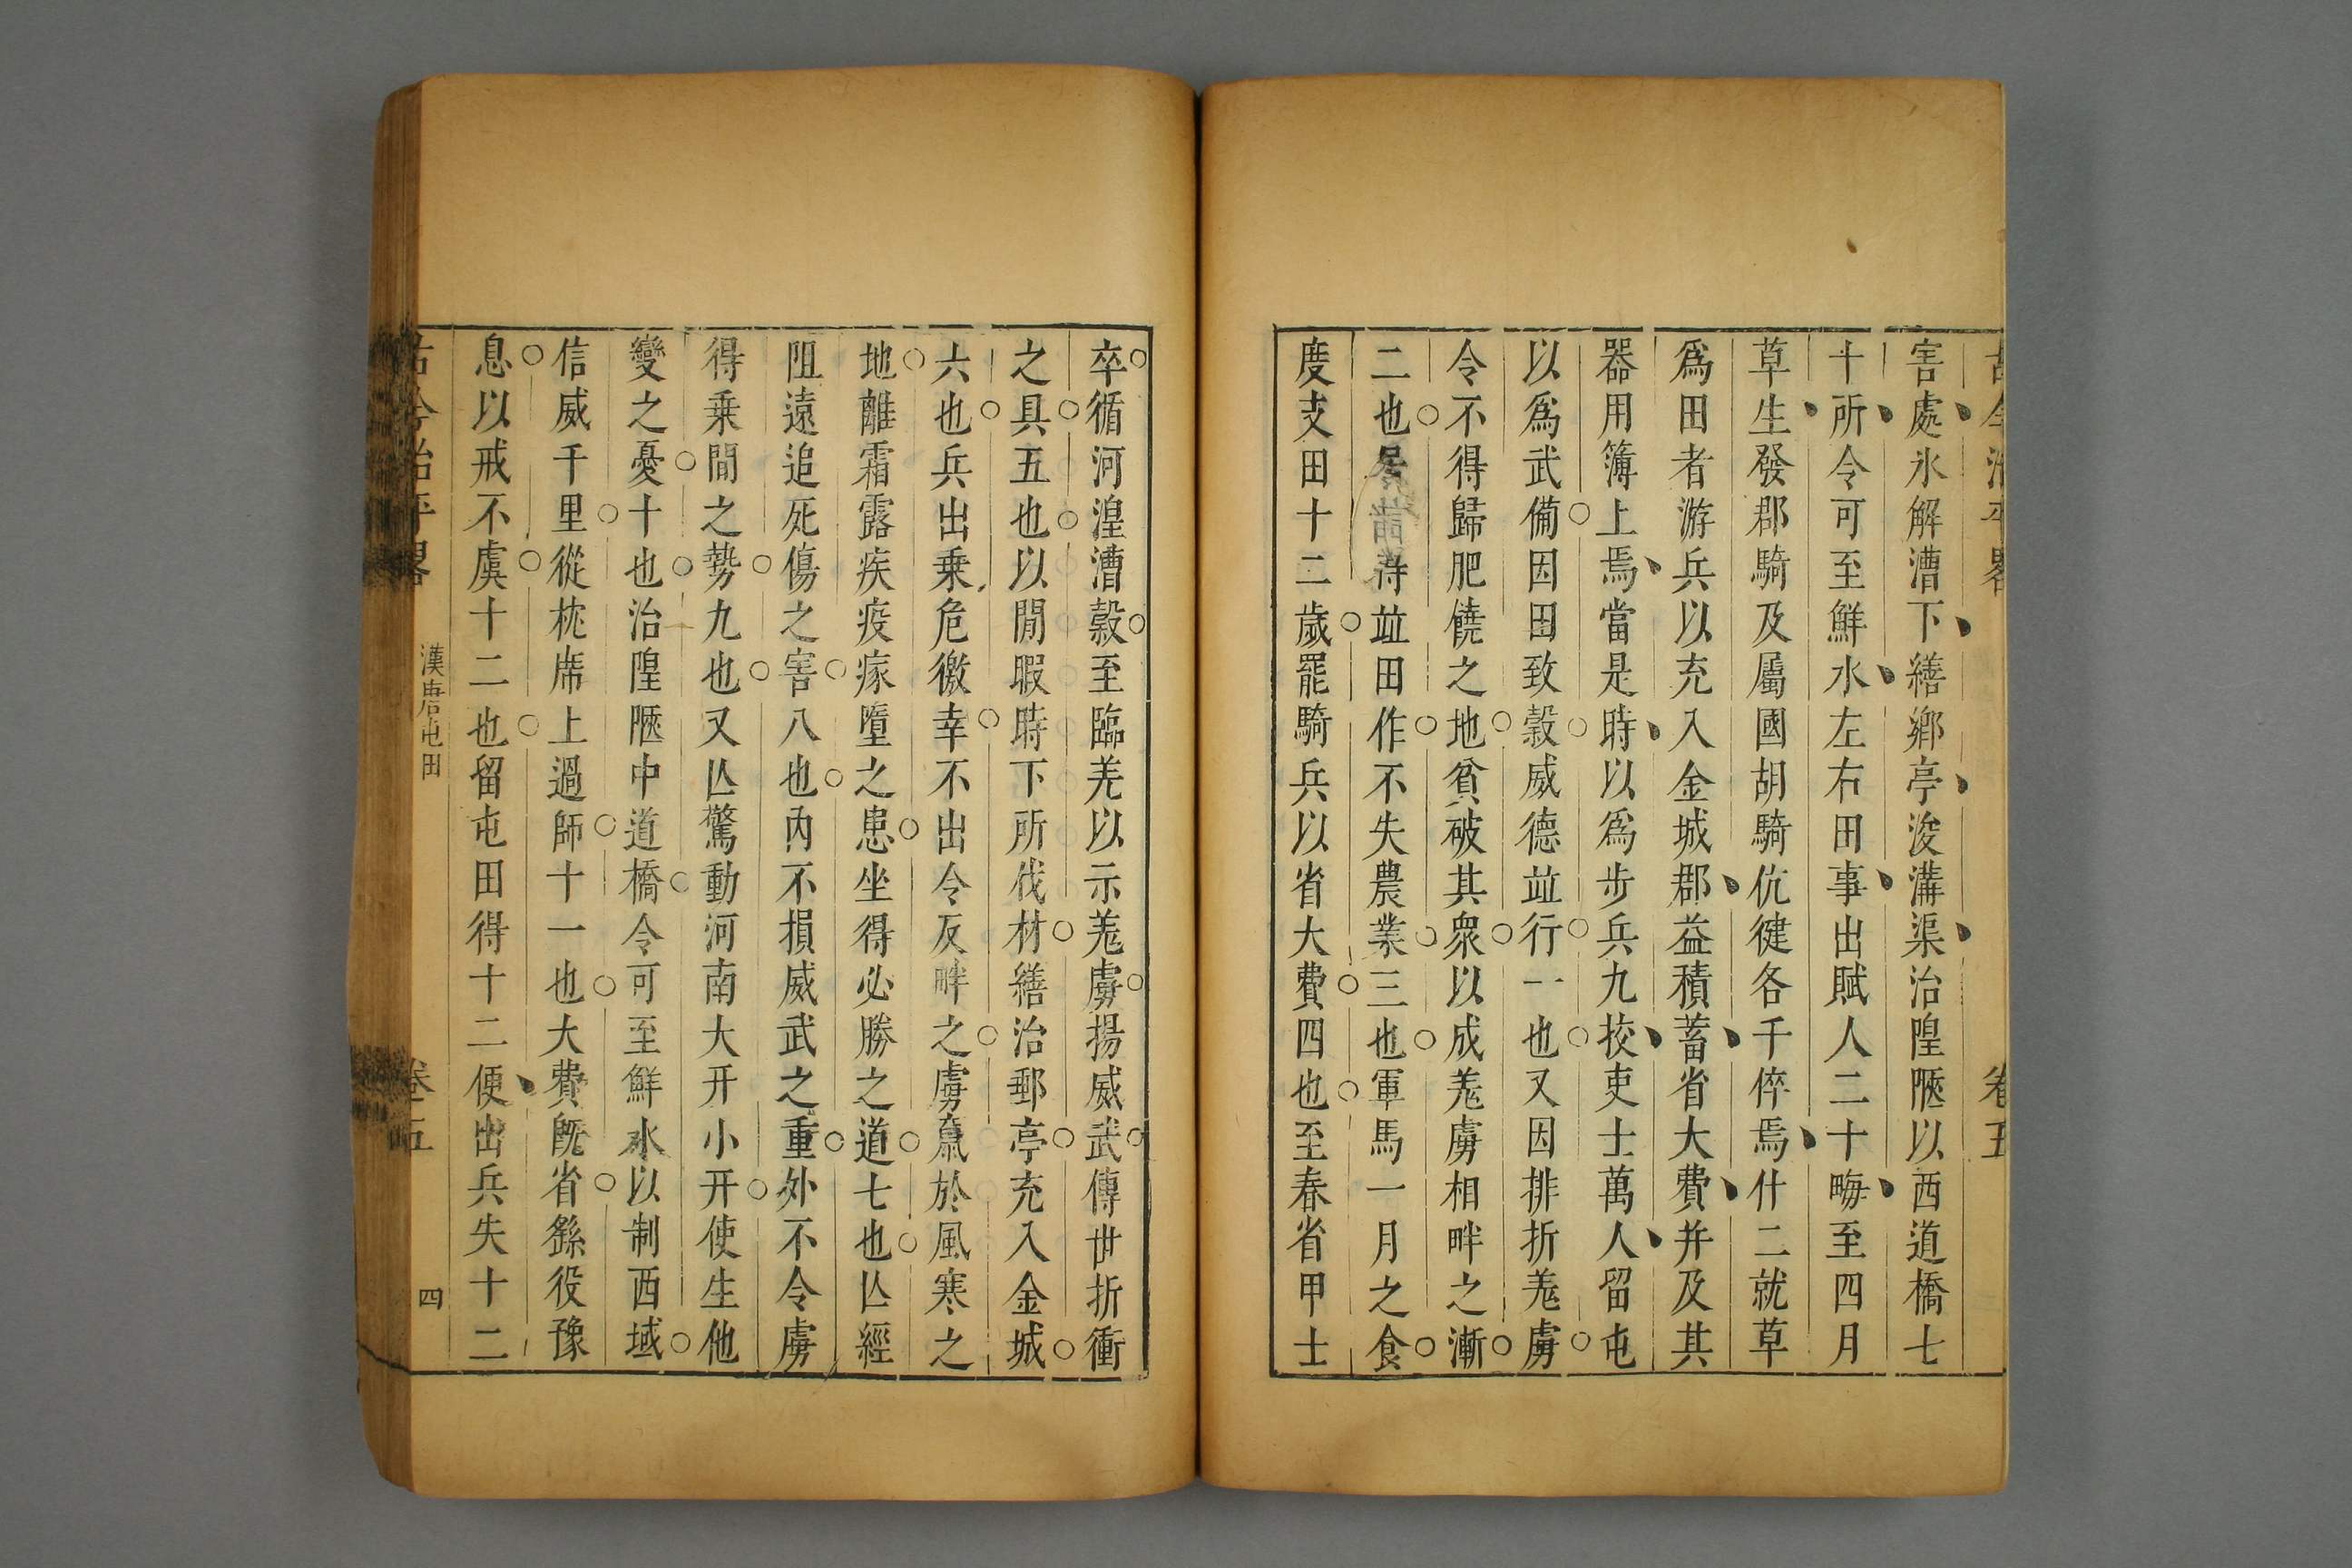 古今治平畧 卷五
害處氷解漕下繕鄉亭浚溝渠治隍陿以西道橋七
十所令可至鮮水左右田事出賦人二十畮至四月
草生發郡騎及屬國胡騎伉健各千倅焉什二就草
爲田者游兵以充入金城郡益積蓄省大費并及其
器用簿上焉當是時以爲步兵九挍吏士萬人留屯
以爲武備因田致穀威德竝行一也又因排折羗虜
令不得歸肥饒之地貧破其衆以成羗虜相畔之漸
二也居 得竝田作不失農業三也軍馬一月之食
度支田十二歲罷騎兵以省大費四也至春省甲士
卒循河湟漕穀至臨羌以示羗虜揚威武傳世折衝
之具五也以閒暇時下所伐材繕治郵亭充入金城
六也兵出乗危徼幸不出令反畔之虜竄於風寒之
地離霜露疾疫瘃墮之患坐得必勝之道七也亾經
阻遠追死傷之害八也內不損威武之重外不令虜
得乗間之勢九也又亾驚動河南大开小开使生他
變之憂十也治隍陿中道橋令可至鮮水以制西域
信威千里從枕席上過師十一也大費旣省繇役豫
息以戒不虞十二也留屯田得十二便出兵失十二
古今治平畧 漢唐屯田 卷五 四